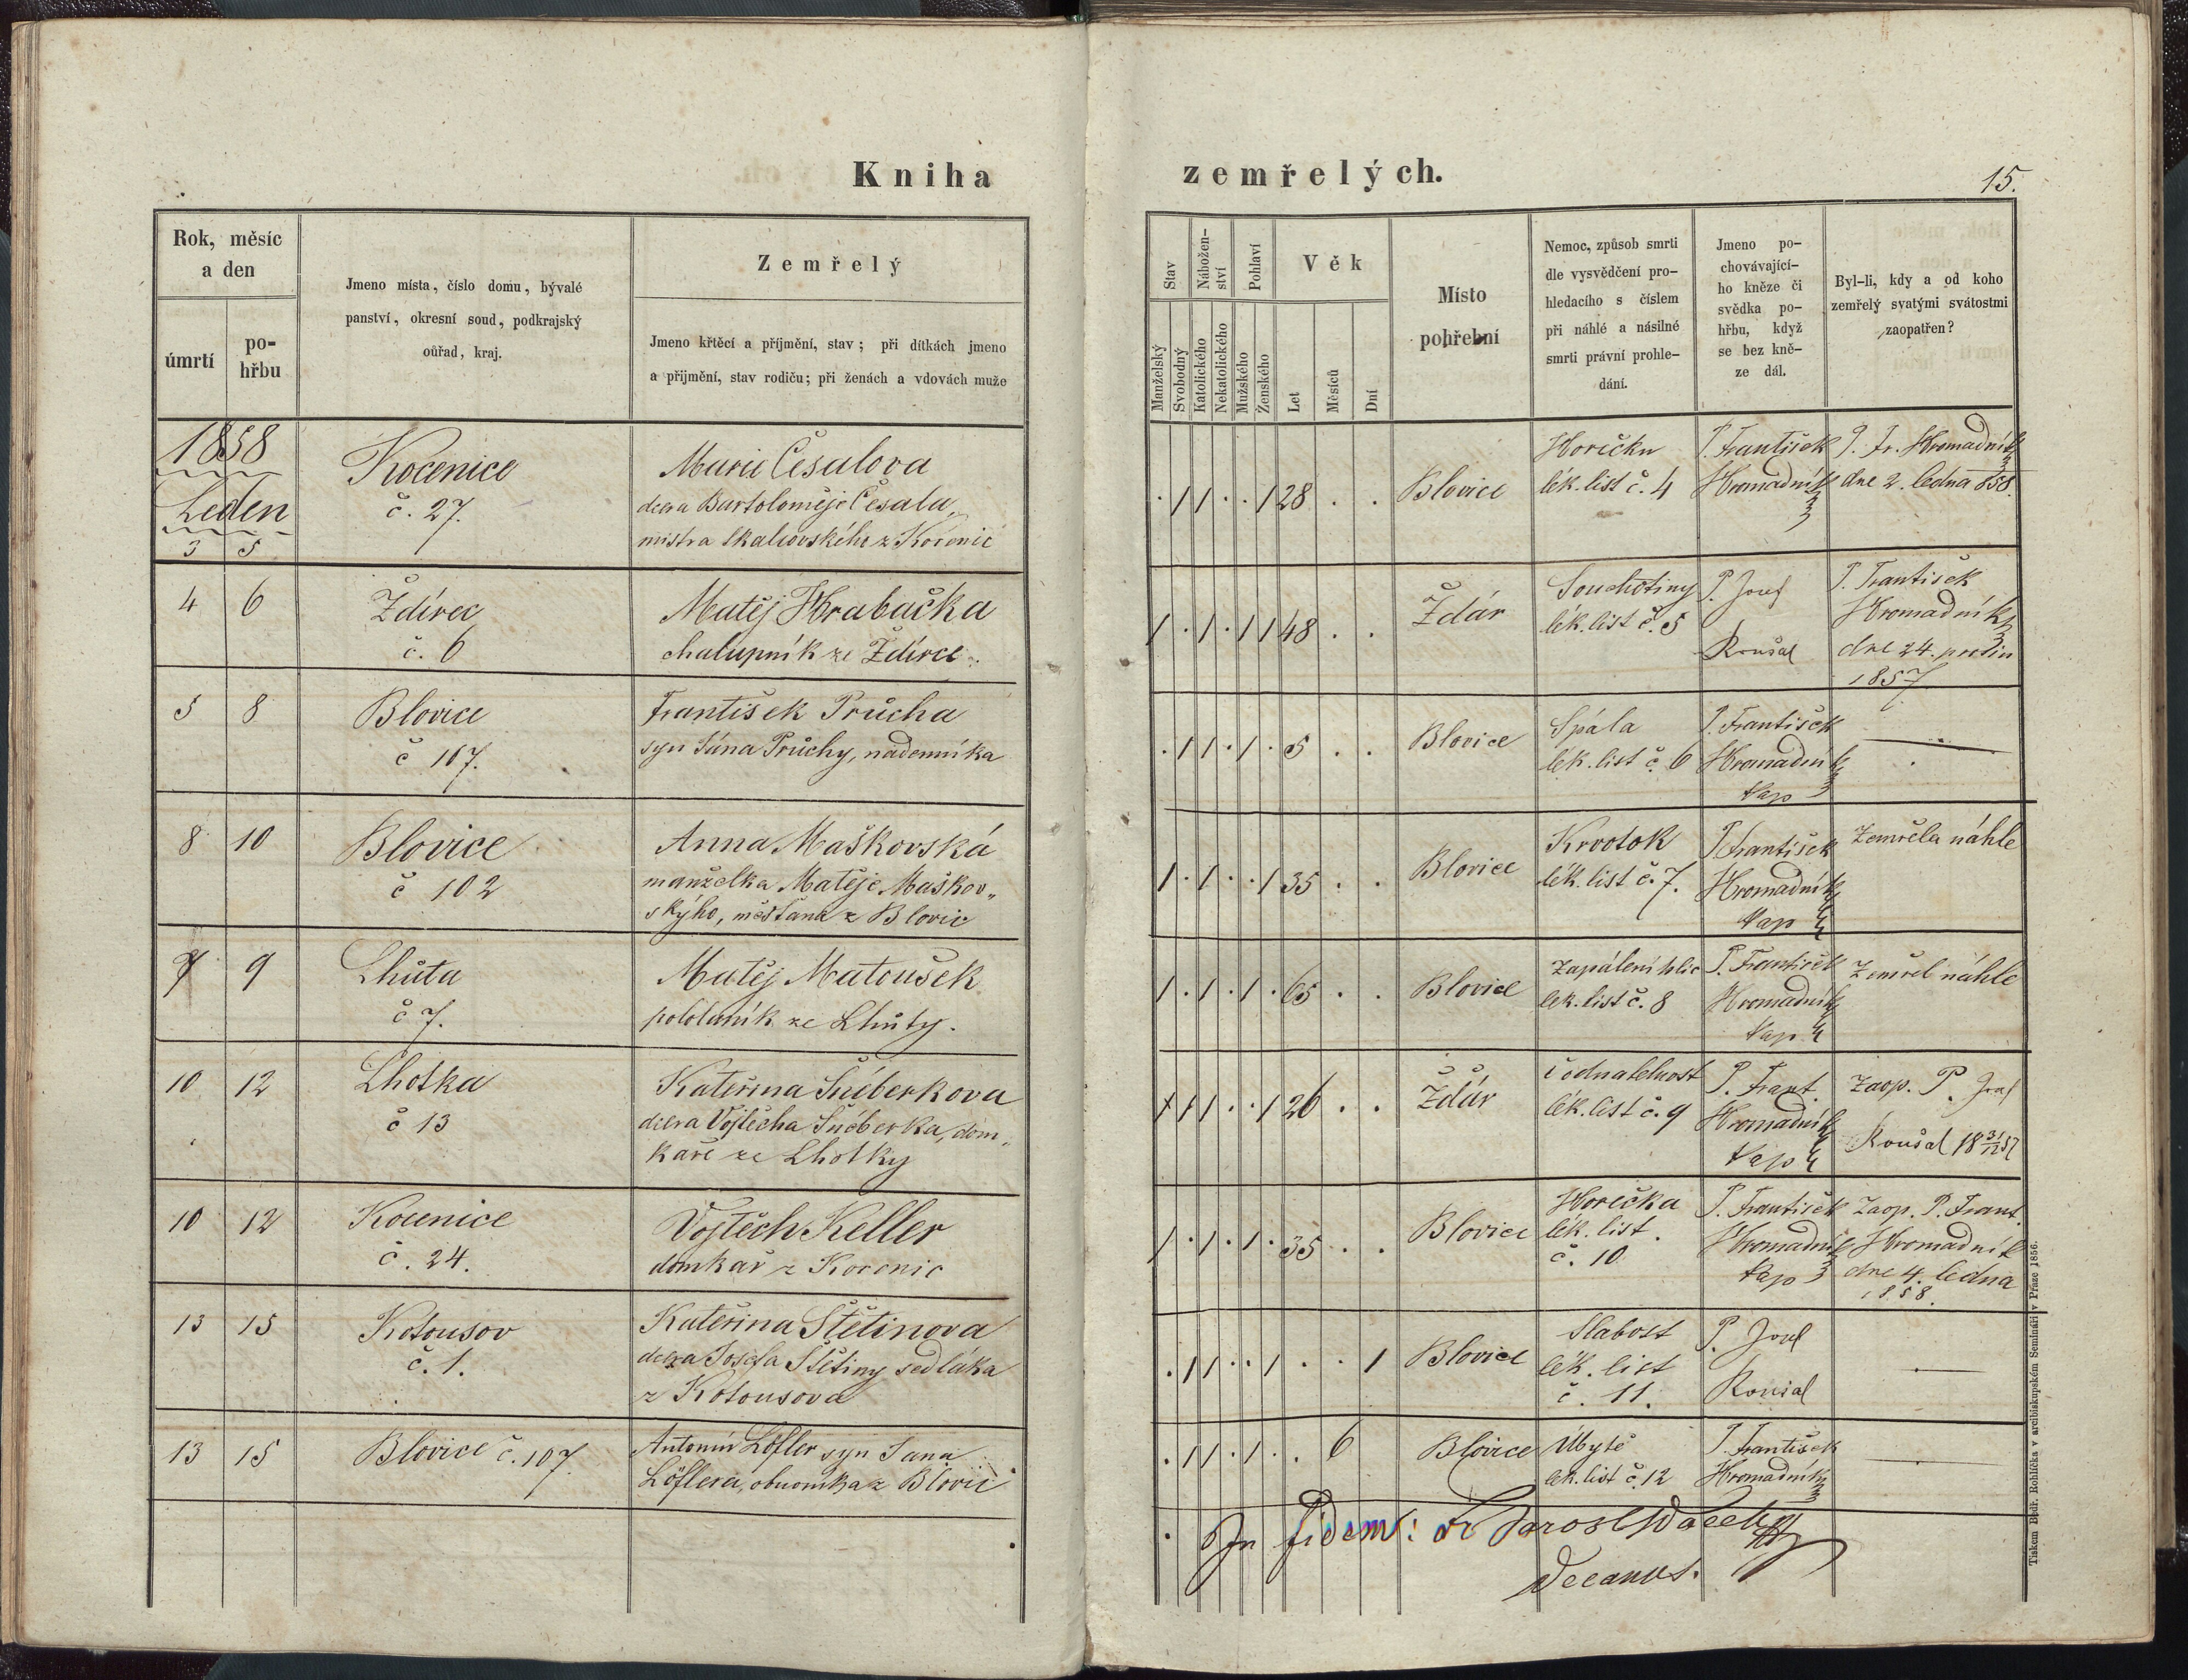 Kniha
zemřelých.
15.
Rok, měsíc
a den
úmrtí
po-
hřbu
Jmeno místa, číslo domu, bývalé
panství, okresní soud, podkrajský
ouřad, kraj.
Zemřelý
Jmeno křtěcí a příjmění, stav; při dítkách jmeno
a přijmění, stav rodičů; při ženách a vdovách muže
Stav
Nábožen-
ství
Pohlaví
Věk
Manželský
Svobodný
Katolického
Nekatolického
Mužského
Ženského
Let
Měsíců
Dní
Místo
pohřební
Nemoc, způsob smrti
dle vysvědčení pro-
hledacího s číslem
při náhlé a násilné
smrti právní prohle-
dání.
Jmeno po-
chovávající-
ho kněze či
svědka po-
hřbu, když
se bez kně-
ze dál.
Byl-li, kdy a od koho
zemřelý svatými svátostmi
zaopatřen?
1858
Leden
3 5
Kocenice
č. 27.
Marie Česalova
dcera Bartoloměje Česala,
mistra tkalcovského z Kocenic
. 1 1 . . 1 28 . .
Blovice
Horečku
lék. list č. 4
P. František
Hromadník
P. Fr. Hromadník
dne 2. ledna 858.
4 6
Ždírec
č. 6
Matěj Hrabačka
chalupník ze Ždírce.
1 . 1 . 1 1 48 . .
Ždár
Souchotiny
lék. list č. 5
P. Josef
Roušal
P. František
Hromadník
dne 24. prosin
1857
5 8
Blovice
č 167.
František Průcha
syn Jána Průchy, nadenníka
. 1 1 . 1 . 5 . .
Blovice
Spála
lék. list č. 6
P. František
Hromadník
kap
8 10
Blovice
č 102
Anna Maškovská
manželka Matěje Maškov„
skýho, měšťana z Blovic
1 . 1 . . 1 35 . .
Blovice
Krvotok
lék. list č. 7.
P František
Hromadník
kap
Zemřela náhle
7 9
Lhůta
č 7.
Matěj Matoušek
pololaník ze Lhůty.
1 . 1 . 1 . 65 . .
Blovice
Zapálení plic
lek. list č. 8
P. František
Hromadník
kap
Zemřel náhle
10 12
Lhotka
č 13
dcera Vojtěcha
kaře ze Lhotky
1 1 1 . . 1 26 . .
Ždár
lék. list č. 9
P. Frant.
Hromadník
kap
Zaop. P. Josef
Roušal 18 31/12 57
10 12
Kocenice
č. 24.
Vojtěch Keller
domkař z Kocenic
1 . 1 . 1 . 35 . .
Blovice
Horečka
lék. list.
č. 10
P. František
Hromadník
kap
Zaop. P. Frant.
Hromadník
dne 4. ledna
1858.
13 15
Kotousov
č. 1.
Kateřina Štětinova
dcera Josefa Štětiny sedláka
z Kotousova
. 1 1 . . 1 . . 1
Blovice
Slabost
lék. list
č. 11.
P. Josef
Roušal
13 15
Blovice č. 107.
Antonín Löfler syn Jana
Löflera, obuvníka z Blovic
. 1 1 . 1 . . 6
Blovice
Úbytě
lek. list č. 12
P. František
Hromadník
In fidem:
Decanus.
Tiskem Bedř. Rohlíčka v arcibiskupském Semináři v Praze 1856.